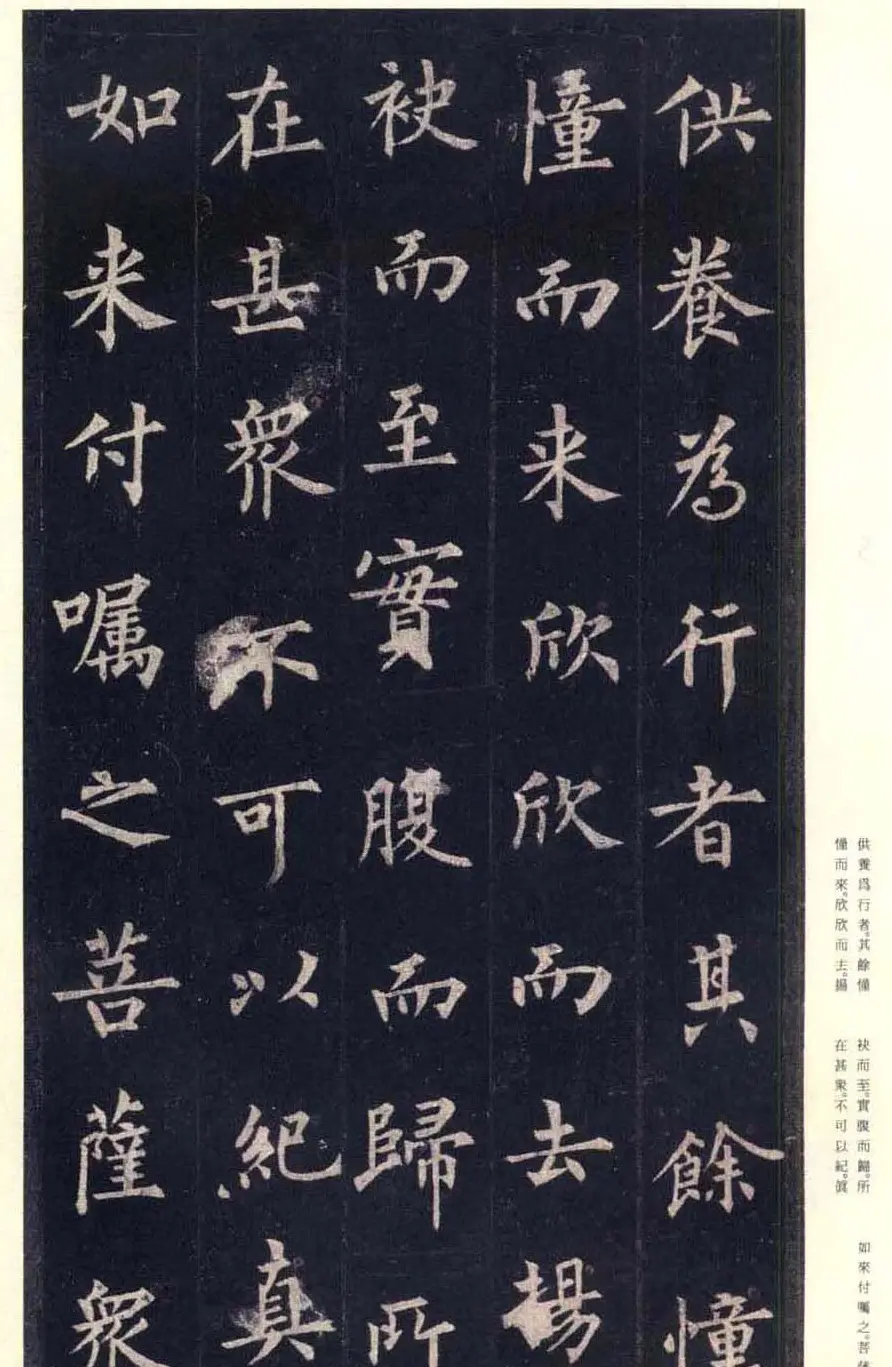 供養為行者其餘憧
憧而来欣欣而去揚
袂而至實腹而歸所
在甚衆不可以紀真
如来付嘱之菩薩衆
供養爲行者。其餘憧
憧而來。欣欣而去。揚
袂而至。實腹而歸。所
在甚衆。不可以紀。眞
如來付囑之。菩